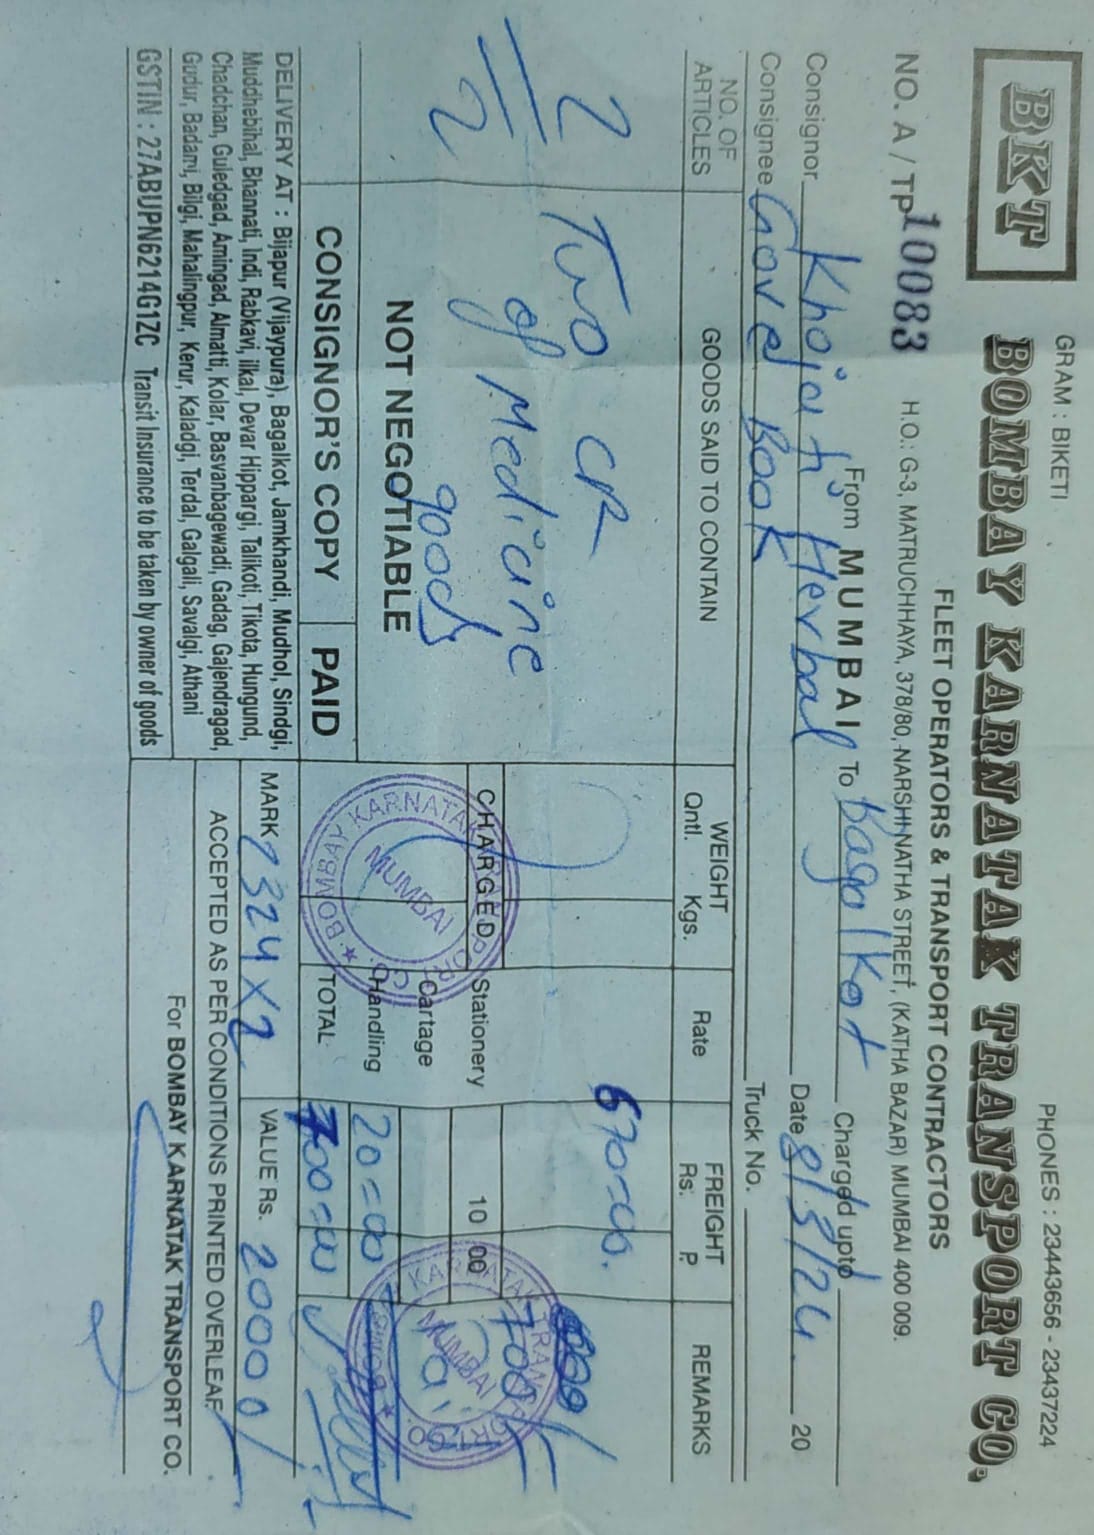 GRAM : BIKETI
PHONES : 23443656 - 23437224
BKT
BOMBAY KARNATAK TRANSPORT CO.
FLEET OPERATORS & TRANSPORT CONTRACTORS
NO. A / TP 10083
H.O.: G-3, MATRUCHHAYA, 378/80, NARSHI NATHA STREET, (KATHA BAZAR) MUMBAI 400 009.
From MUMBAI To Bagalkot Charged upto
Consignor Khojati Herbal Date 8/3/24 20
Consignee Gove Book Truck No.
NO. OF ARTICLES
GOODS SAID TO CONTAIN
WEIGHT
Qntl. Kgs.
Rate
FREIGHT
Rs. P.
REMARKS
2
Two CR
of Medicine
goods
2
670=00.
700/-
CHARGED
Stationery 10 00
Cartage
Handling 20=00
TOTAL 700=00
Paid
NOT NEGOTIABLE
CONSIGNOR'S COPY
PAID
BOMBAY KARNATAK TRANSPORT CO.
MUMBAI
KARNATAK TRANSPORT CO.
MUMBAI
DELIVERY AT : Bijapur (Vijaypura), Bagalkot, Jamkhandi, Mudhol, Sindgi,
Muddhebihal, Bhannati, Indi, Rabkavi, ilkal, Devar Hippargi, Talikoti, Tikota, Hungund,
Chadchan, Guledgad, Amingad, Almatti, Kolar, Basvanbagewadi, Gadag, Gajendragad,
Gudur, Badami, Bilgi, Mahalingpur, Kerur, Kaladgi, Terdal, Galgali, Savalgi, Athani
GSTIN : 27ABUPN6214G1ZC Transit Insurance to be taken by owner of goods
MARK 7324X2
VALUE Rs. 20000/
ACCEPTED AS PER CONDITIONS PRINTED OVERLEAF.
For BOMBAY KARNATAK TRANSPORT CO.